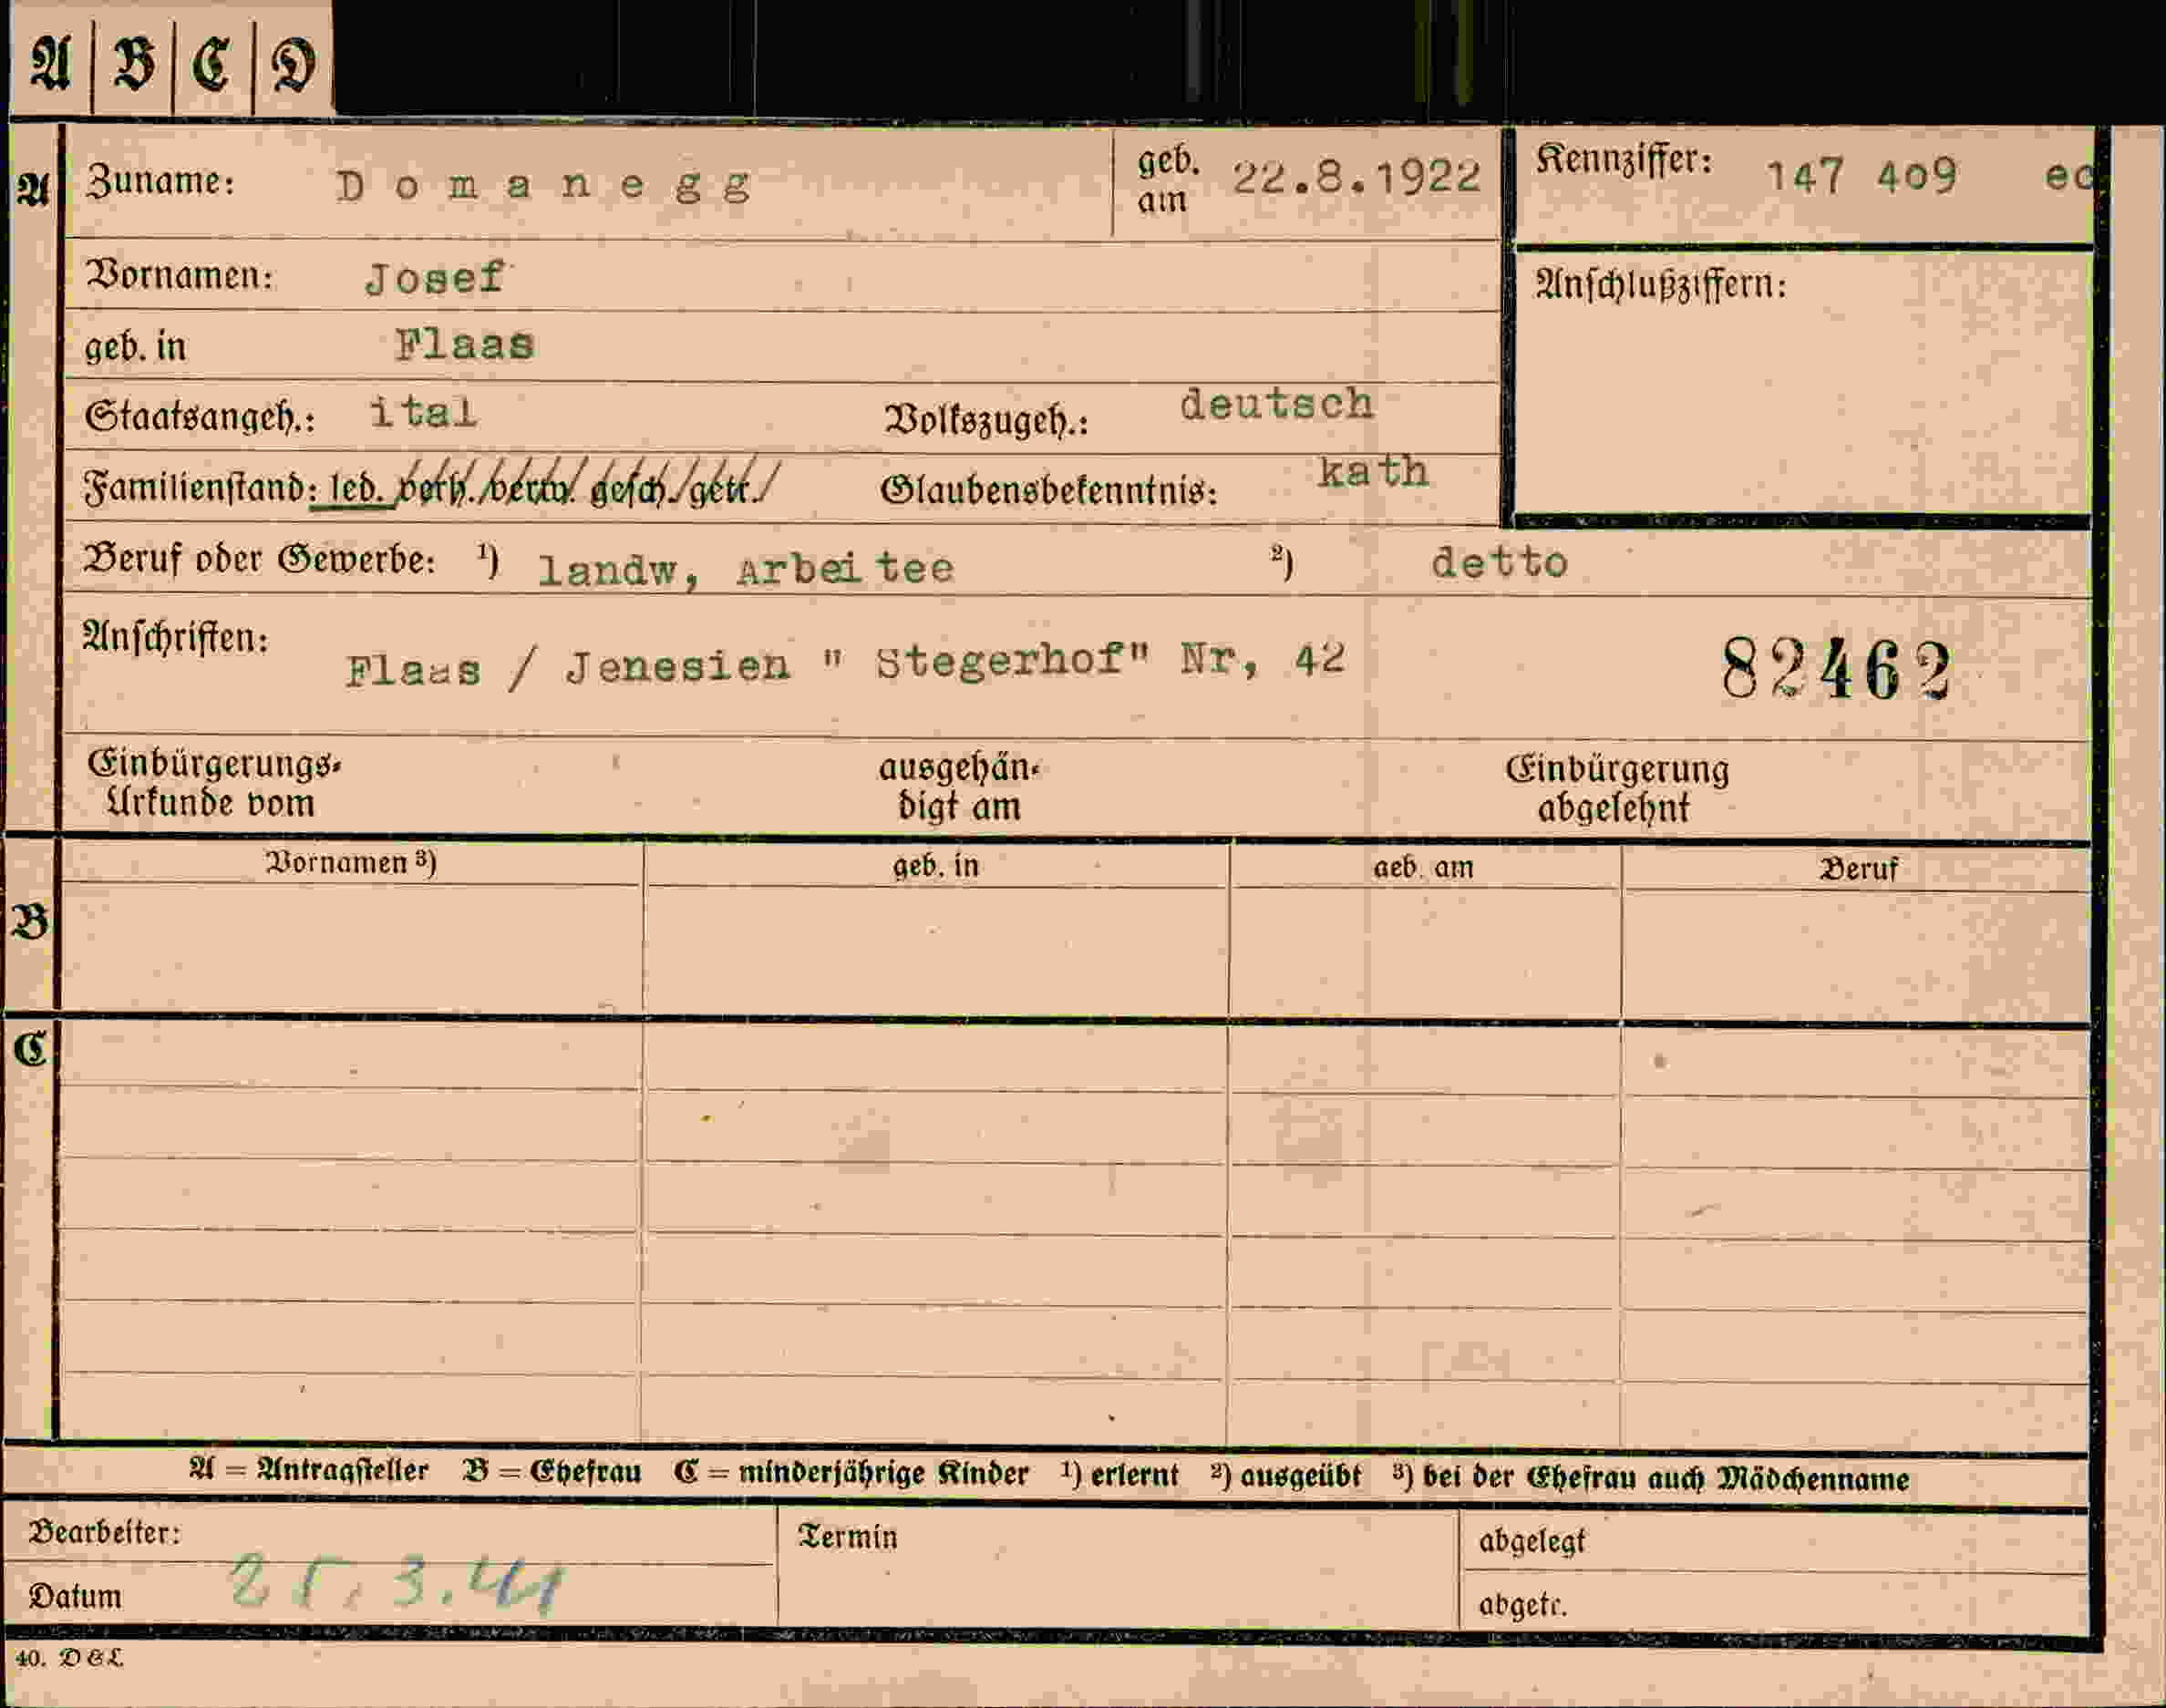 A B C D
A Zuname: Domanegg geb. am 22.8.1922 Kennziffer: 147 409
Vornamen: Josef Anschlußziffern:
geb. in Flaas
Staatsangeh.: ital Volkszugeh.: deutsch
Familienstand: led. verh. verw. gesch. getr. Glaubensbekenntnis: kath
Beruf oder Gewerbe: ¹) landw, Arbeitee ²) detto
Anschriften: Flaas / Jenesien " Stegerhof" Nr, 42 82462
Einbürgerungs- ausgehän- Einbürgerung
Urkunde vom digt am abgelehnt
Vornamen ³) geb. in geb. am Beruf
B
C
A = Antragsteller B = Ehefrau C = minderjährige Kinder ¹) erlernt ²) ausgeübt ³) bei der Ehefrau auch Mädchenname
Bearbeiter: Termin abgelegt
Datum 25.3.41 abgetr.
40. D & L